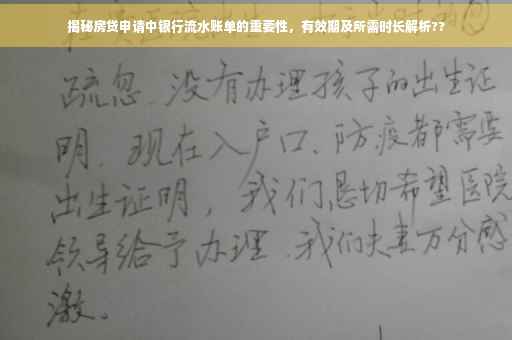 揭秘房贷申请中银行流水账单的重要性，有效期及所需时长解析??
疏忽、没有办理孩子的出生证
明、现在入户口、防疫都需要
出生证明，我们恳切希望医院
领导给予办理、我们夫妻万分感
激。